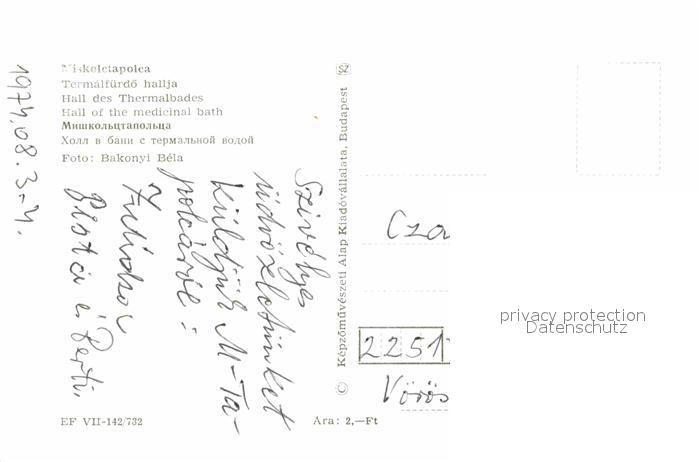 Miskolctapolca
Termálfürdő hallja
Hall des Thermalbades
Hall of the medicinal bath
Мишкольцтапольца
Холл в бани с термальной водой
Foto: Bakonyi Béla
1974.08.3-4.
Szivélyes
üdvözletünket
küldjük M-Ta-
polcáról:
és Berti.
EF VII-142/732
© Képzőművészeti Alap Kiadóvállalata, Budapest SZ
Ara: 2,—Ft
Cza
2251
Vörös
privacy protection
Datenschutz